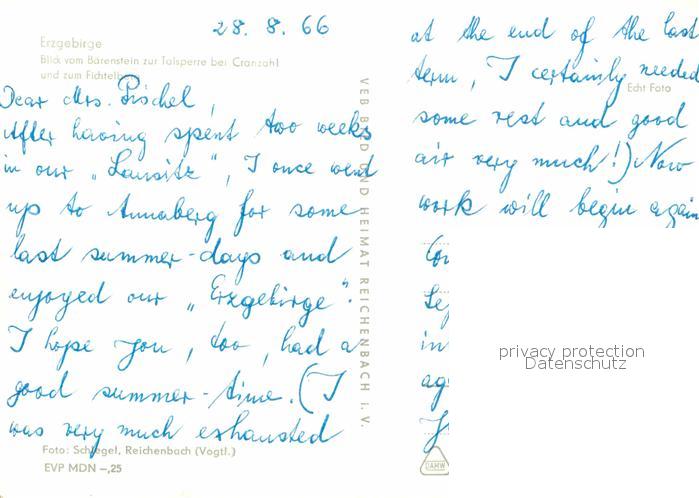 28. 8. 66
Erzgebirge
Blick vom Bärenstein zur Talsperre bei Cranzahl
und zum Fichtelb
Dear Mrs. Pischel,
After having spent two weeks
in our „Lausitz", I once went
up to Annaberg for some
last summer-days and
enjoyed our „Erzgebirge".
I hope you, too, had a
good summer-time. (I
was very much exhausted
Foto: Schlegel, Reichenbach (Vogtl.)
EVP MDN –,25
VEB BILD UND HEIMAT REICHENBACH i. V.
at the end of the last
term, I certainly needed
Echt Foto
some rest and good
air very much!) Now
work will begin again
in
privacy protection
Datenschutz
DAMW